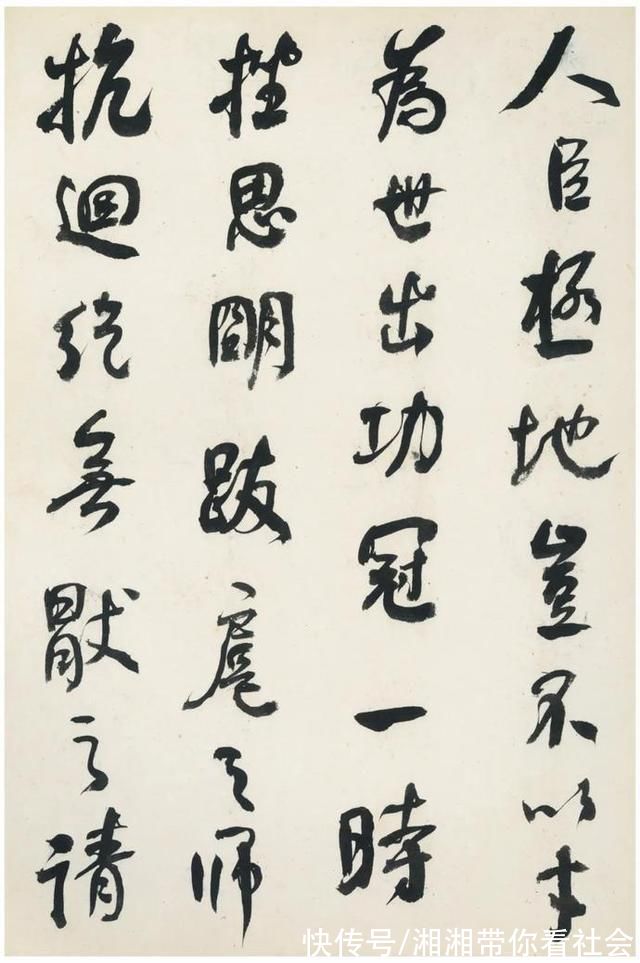 人臣極地豈不以才
為世出功冠一時
挫思明跋扈之師
抗迴紇無猒之請
快传号/湘湘带你看社会